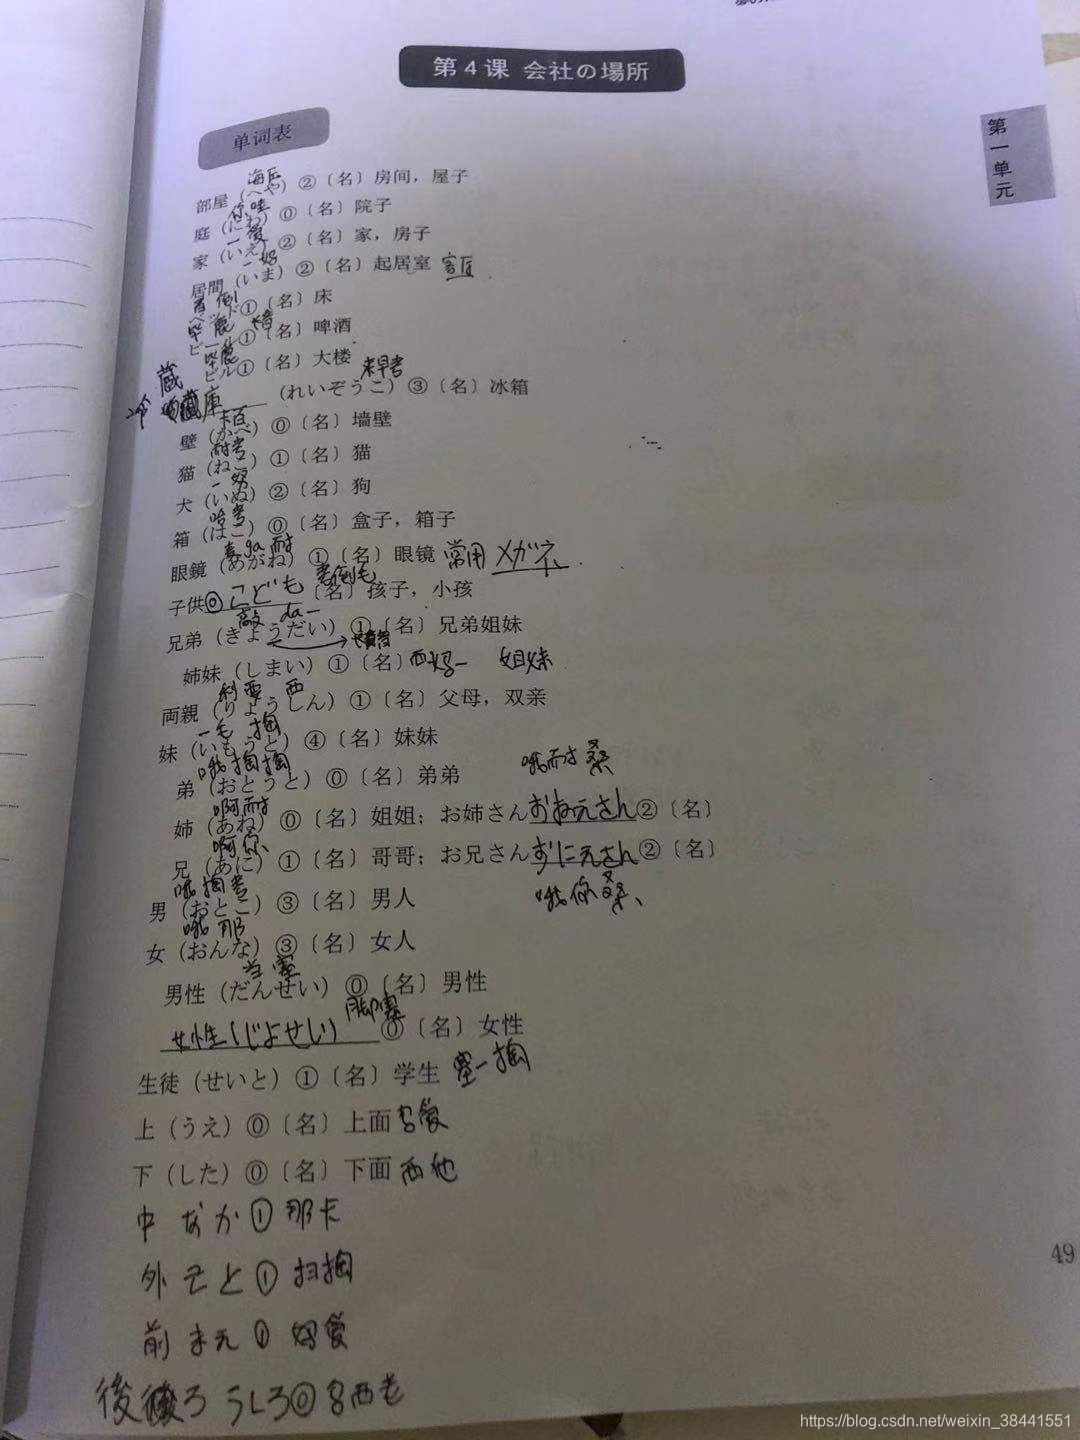 第4课 会社の場所
单词表
第一单元
部屋（へや）②〔名〕房间，屋子
庭（にわ）⓪〔名〕院子
家（いえ）②〔名〕家，房子
居間（いま）②〔名〕起居室
ベッド①〔名〕床
ビール①〔名〕啤酒
ビル①〔名〕大楼
冷蔵庫（れいぞうこ）③〔名〕冰箱
壁（かべ）⓪〔名〕墙壁
耐考
猫（ねこ）①〔名〕猫
犬（いぬ）②〔名〕狗
哈考
箱（はこ）⓪〔名〕盒子，箱子
眼鏡（めがね）①〔名〕眼镜 常用 メガネ
子供⓪こども〔名〕孩子，小孩
兄弟（きょうだい）①〔名〕兄弟姐妹
姉妹（しまい）①〔名〕西妈一 姐妹
両親（りょうしん）①〔名〕父母，双亲
一毛 掏
妹（いもうと）④〔名〕妹妹
哦掏掏 哦耐桑
弟（おとうと）⓪〔名〕弟弟
啊耐
姉（あね）⓪〔名〕姐姐；お姉さんおねえさん②〔名〕
啊你
兄（あに）①〔名〕哥哥；お兄さんずにえさん②〔名〕
哦掏考 哦你桑
男（おとこ）③〔名〕男人
哦那
女（おんな）③〔名〕女人
男性（だんせい）⓪〔名〕男性
女性（じょせい）⓪〔名〕女性
生徒（せいと）①〔名〕学生 塞一掏
上（うえ）⓪〔名〕上面
下（した）⓪〔名〕下面 西他
中 なか① 那卡
外 そと① 扫掏
前 まえ①
後 ろ うしろ⓪
49
https://blog.csdn.net/weixin_38441551